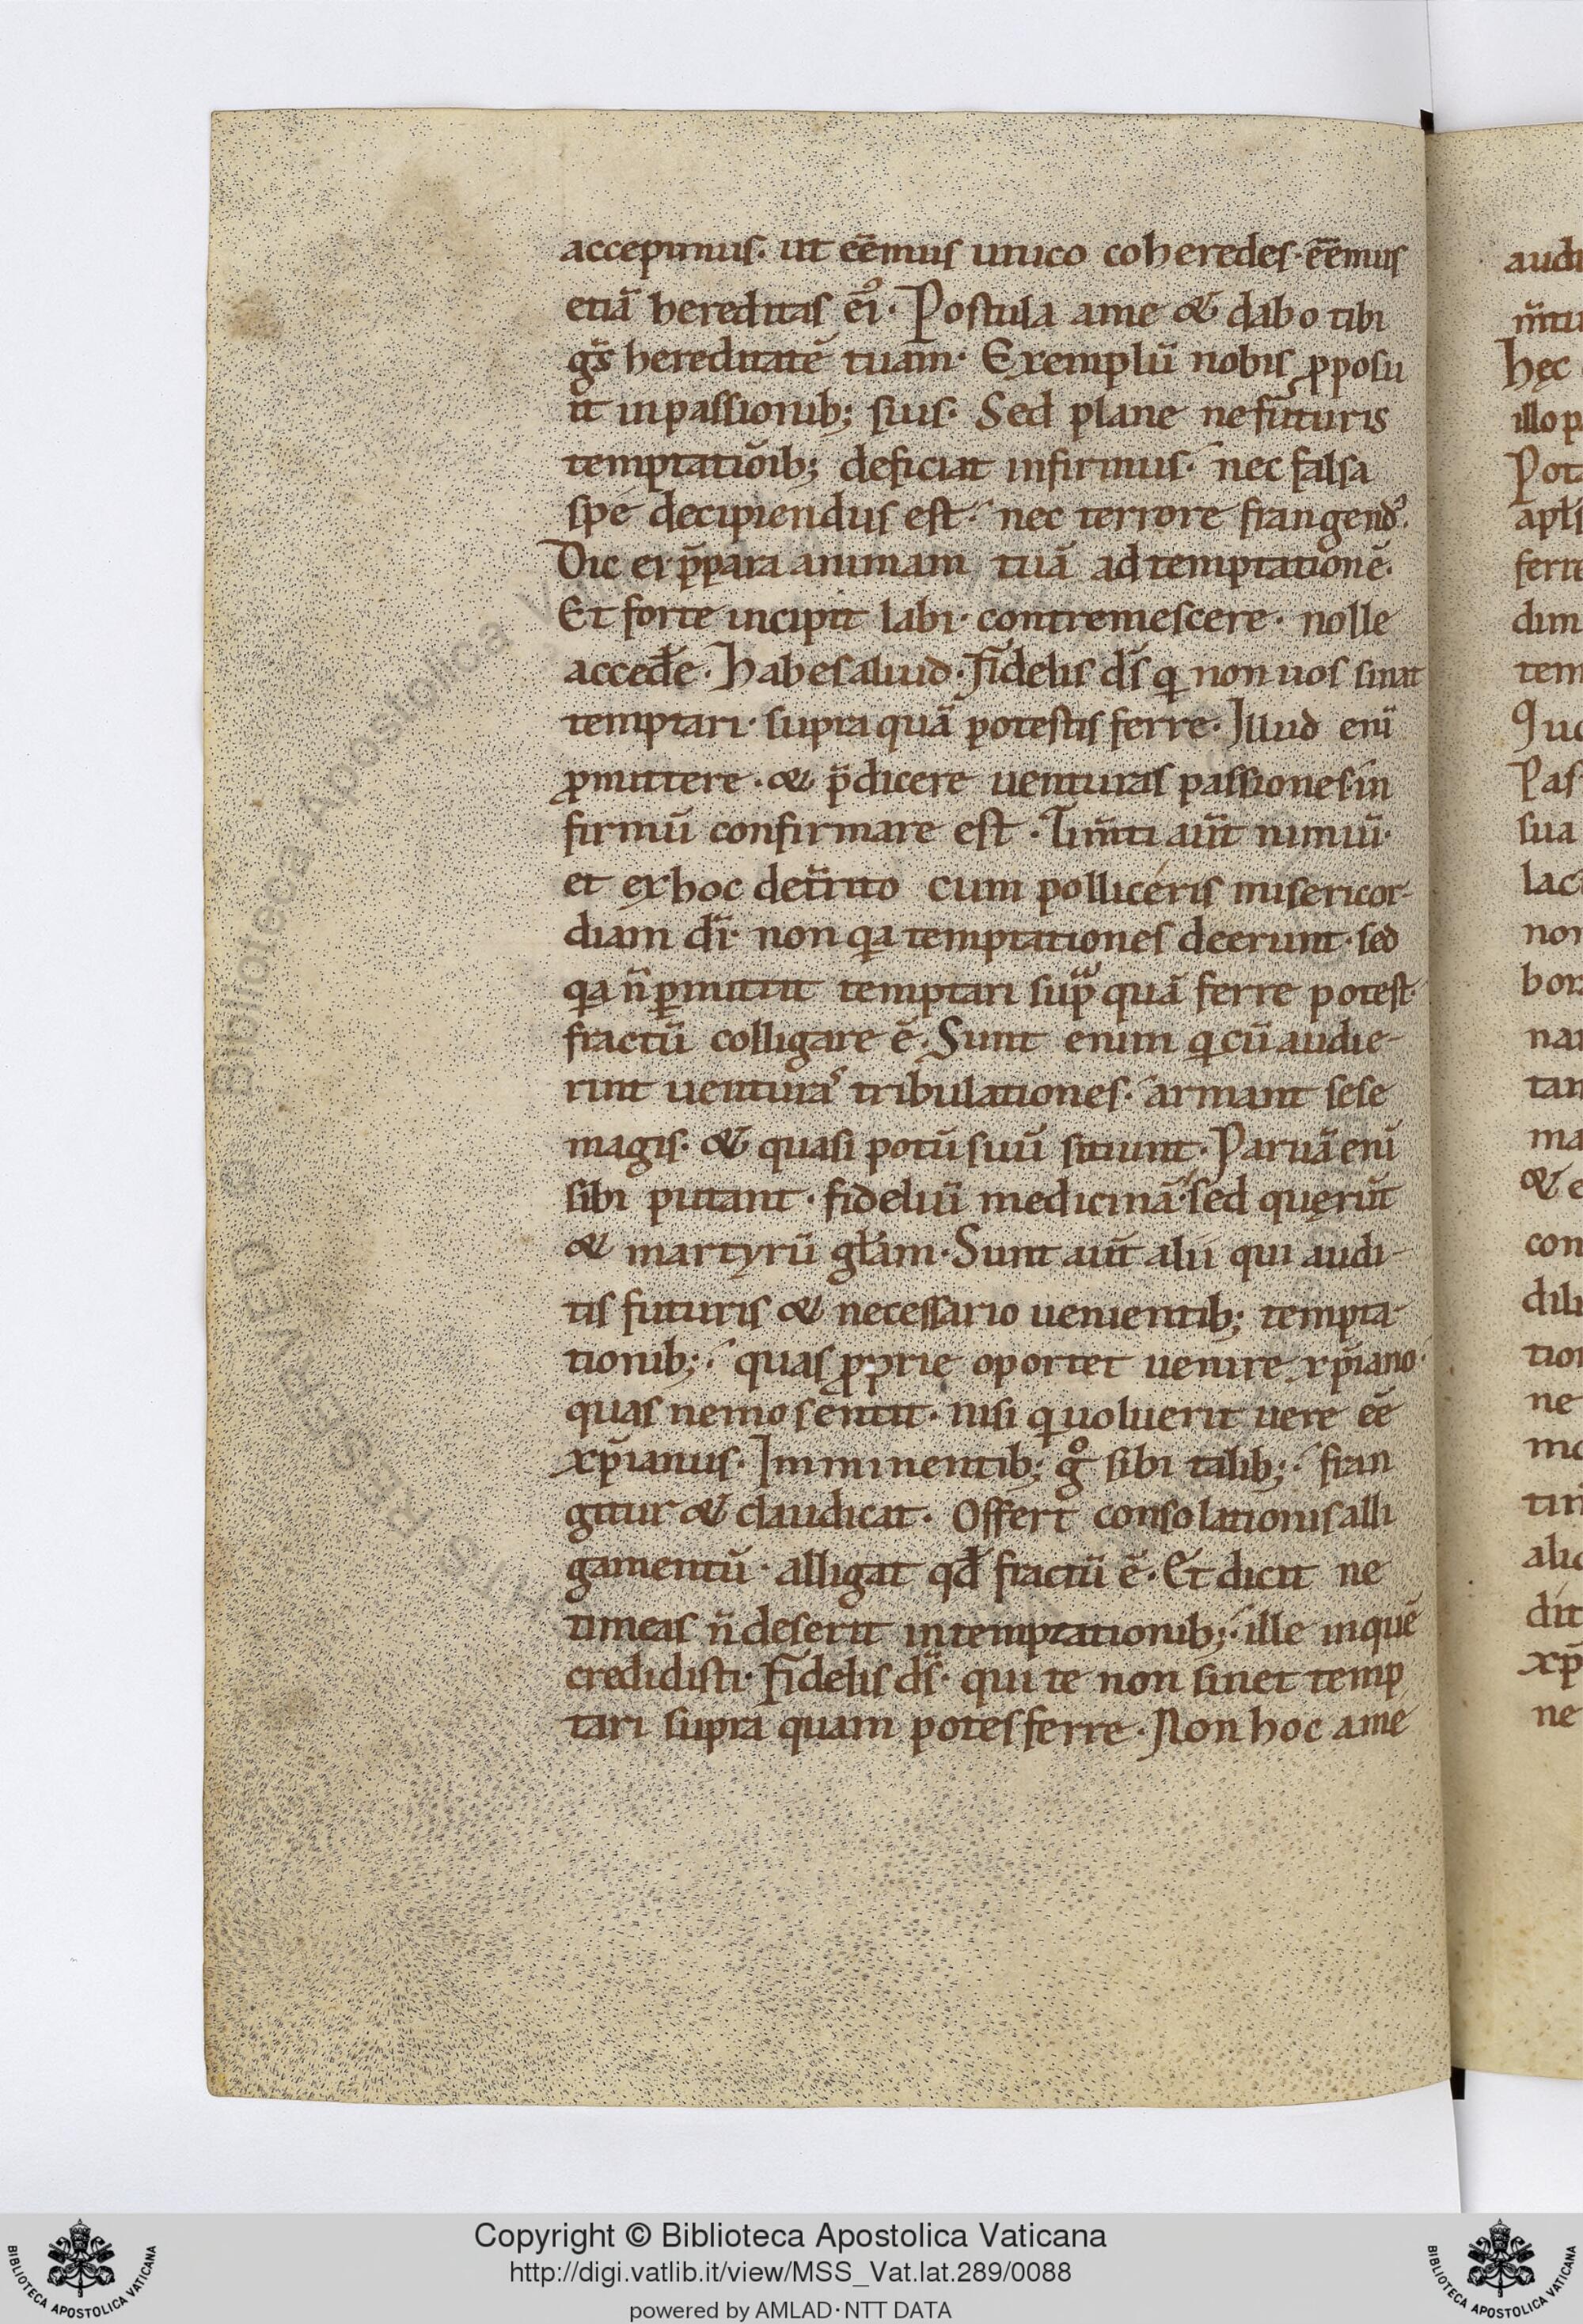 accepimus. ut eēmus unico coheredes. eēmus
etiā hereditas ei᷒. Postula ame & dabo tibi
gs̄ hereditatē tuam. Exemplū nobis ꝓposu
it inpassionib; suis. Sed plane nefuturis
temptatiōib; deficiat infirmus. nec falsa
spe decipiendus est. nec terrore frangendꝰ.
Dic ei p̄para animam tuā ad temptationē.
Et forte incipit labi. contremescere. nolle
accedēe. habesaliud. Fidelis dſ̄ q non uos sinat
temptari. supraquā potestis ferre. Illud enī
ꝓmittere. & p̄dicere uenturas passiones. in
firmū confirmare est. Tim̄ti aūt nimiū.
et exhoc det̄rito cum polliceris misericor-
diam dī. non qa temptationes deerunt. sed
qa n̄ ꝑmittit temptari sup̄ quā ferre potest.
fractū colligare ē. Sunt enim q cū audie-
rint uenturaſ tribulationes. armant sese
magis. & quasi potū suū sitiunt. Paruā enī
sibi putant. fideliū medicinā. sed quęrūt
& martyrū gl̄am. Sunt aūt alii qui audi-
tis futuris & necessario uenientib; tempta-
tionib;. quas ꝓprie oportet uenire xp̄iano.
quas nemo sentit. nisi q uoluerit uere eē
xp̄ianus. Imminentib; gͦ sibi talib;. fran
gitur & claudicat. Offert consolationis alli
gamentū. alligat qđ fractū ē. Et dicit ne
timeas n̄ deserit intemptationib;. ille inquē
credidisti. Fidelis dſ̄. qui te non sinet temp
tari supra quam potesferre. Non hoc ame
Copyright © Biblioteca Apostolica Vaticana
http://digi.vatlib.it/view/MSS_Vat.lat.289/0088
powered by AMLAD·NTT DATA
BIBLIOTECA APOSTOLICA VATICANA
BIBLIOTECA APOSTOLICA VATICANA